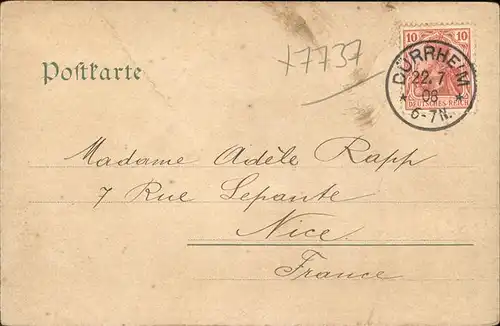 10 10
DÜRRHEIM
22.7
* 06 *
6-7N.
DEUTSCHES REICH
x7737
Postkarte
Madame Adèle Rapp
7 Rue Lepante
Nice
France